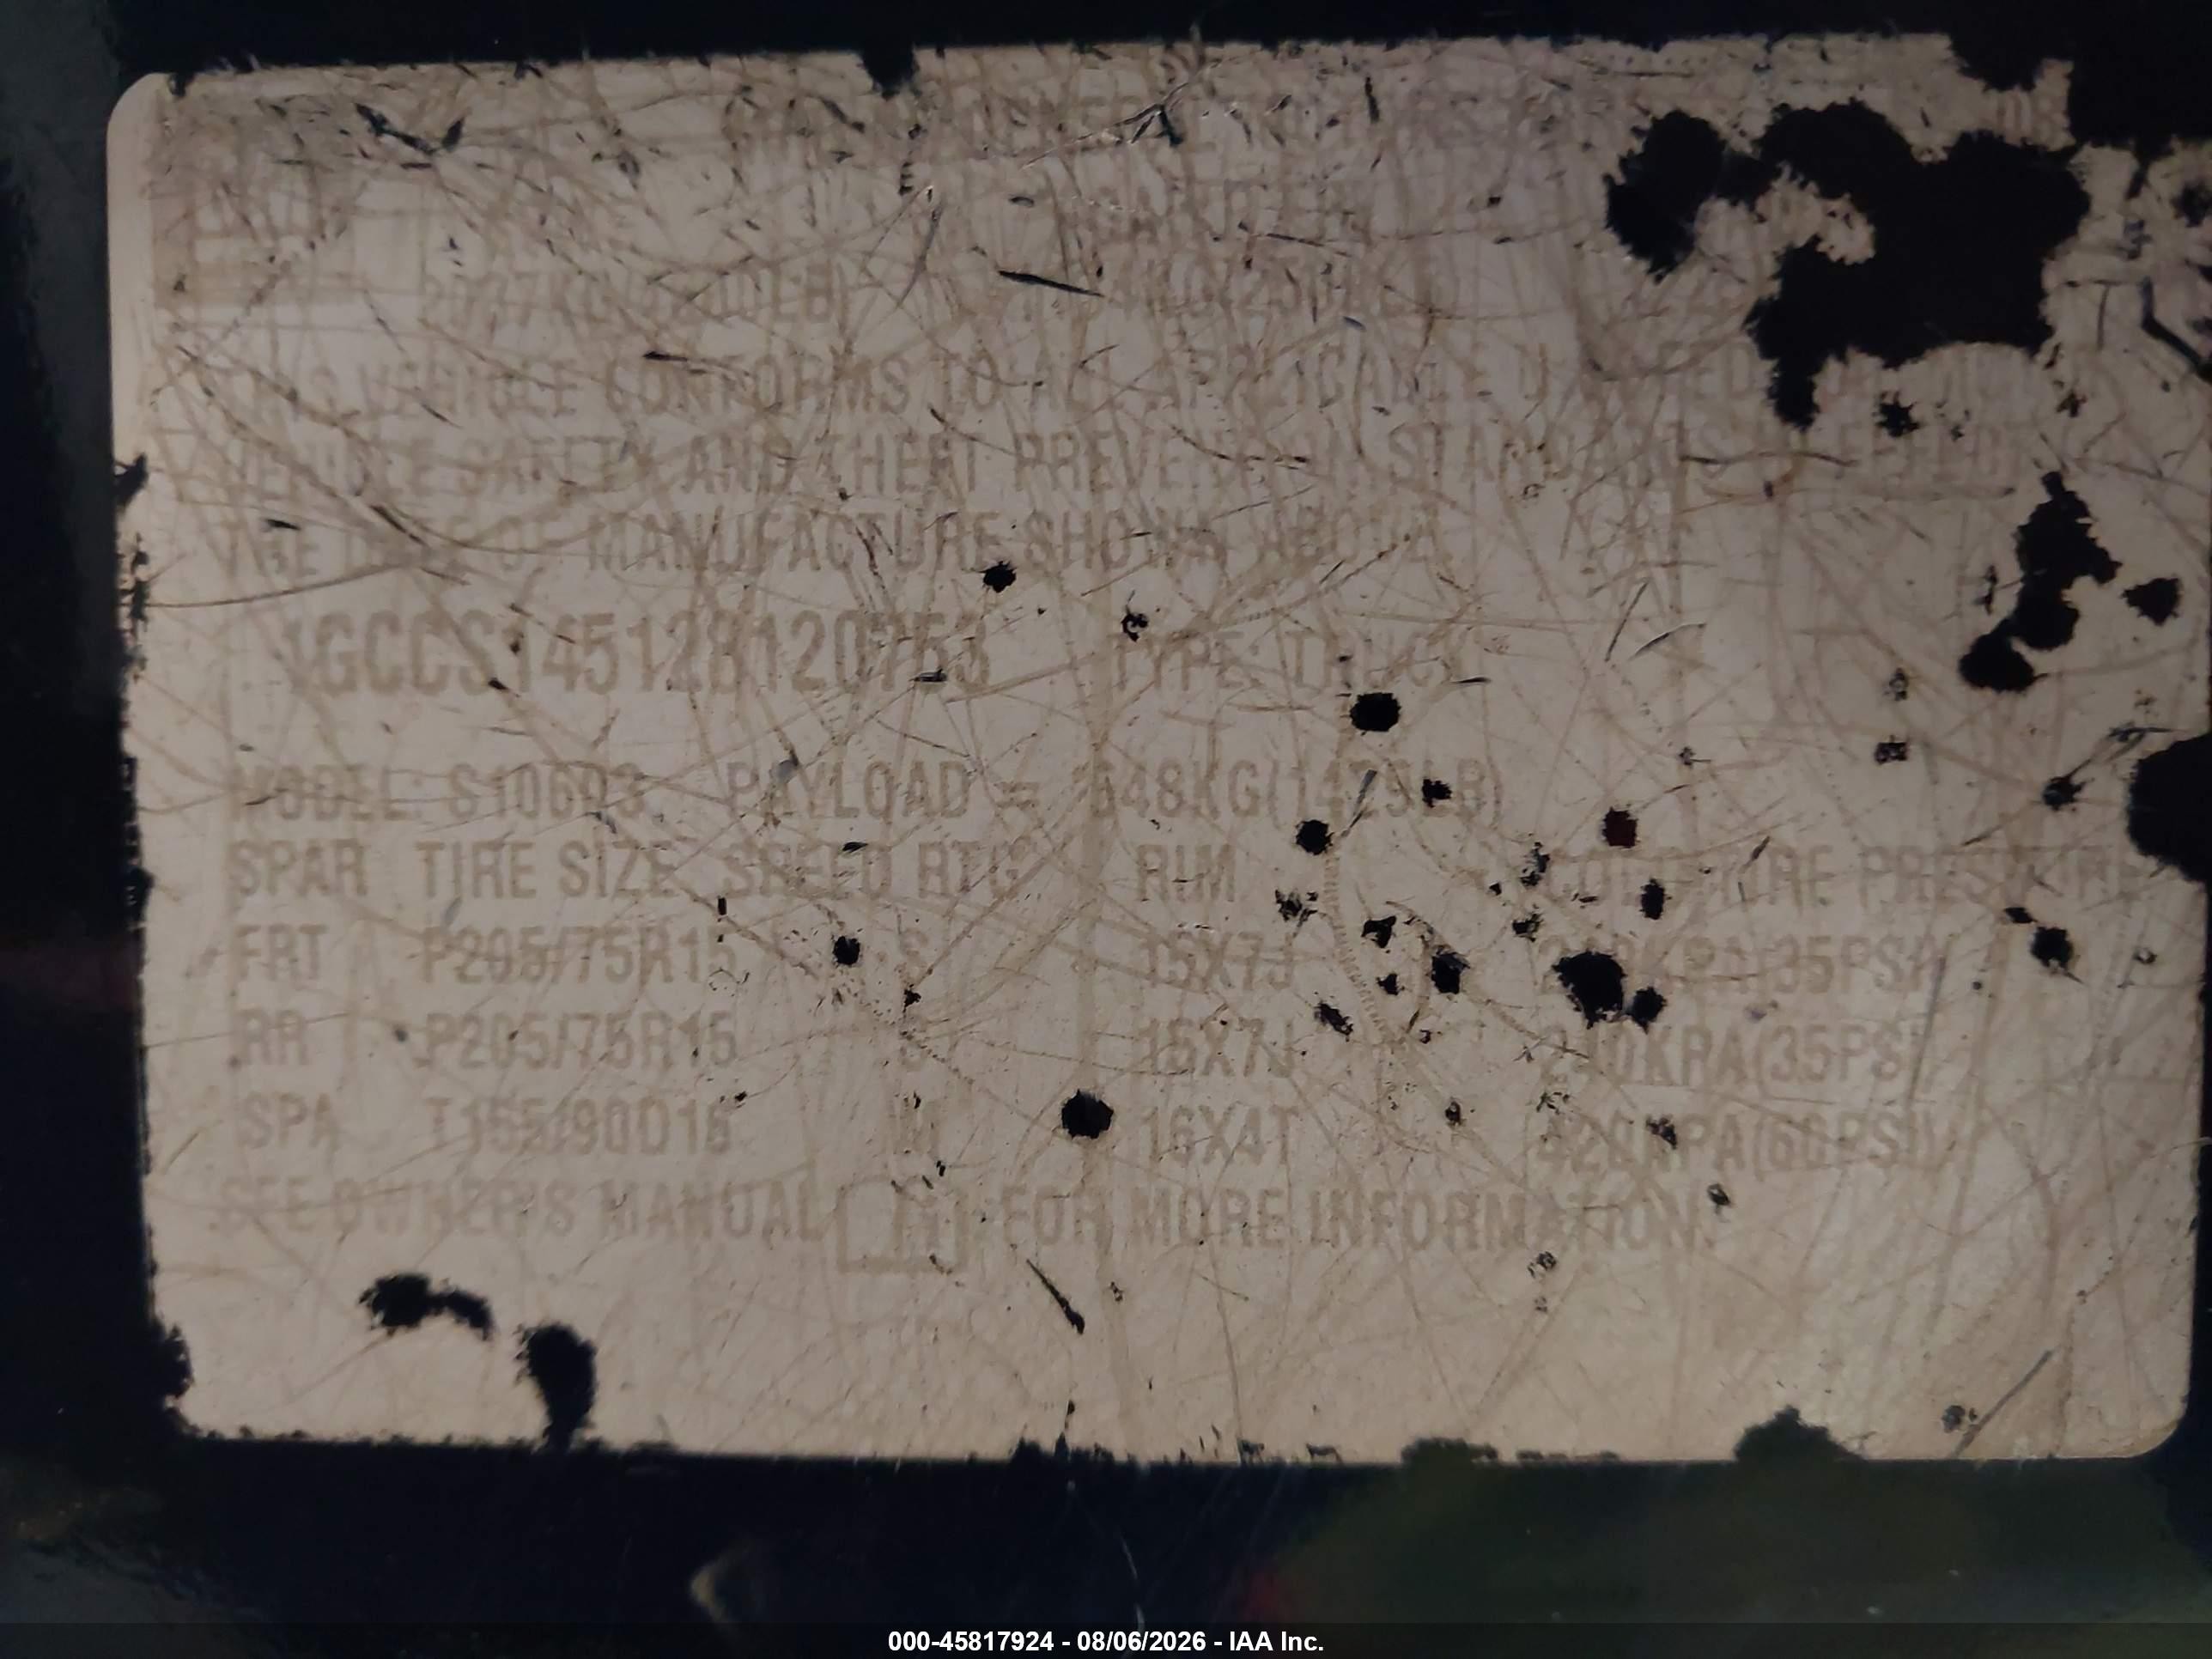 GENERAL MOTORS CORP
GAWR FRT
THIS VEHICLE CONFORMS TO ALL APPLICABLE U
VEHICLE SAFETY AND THEFT PREVENTION STANDARDS IN EFFECT
THE DATE OF MANUFACTURE SHOWN ABOVE
1GCCS145128120753 TYPE: TRUCK
MODEL: S10603 PAYLOAD = 648KG(1429LB)
SPAR TIRE SIZE SPEED RTG RIM COLD TIRE PRESSURE
FRT P205/75R15 S 15X7J 240KPA(35PSI)
RR P205/75R15 S 15X7J 240KPA(35PSI)
SPA T155/90D16 M 16X4T 420KPA(60PSI)
SEE OWNER'S MANUAL FOR MORE INFORMATION.
000-45817924 - 08/06/2026 - IAA Inc.